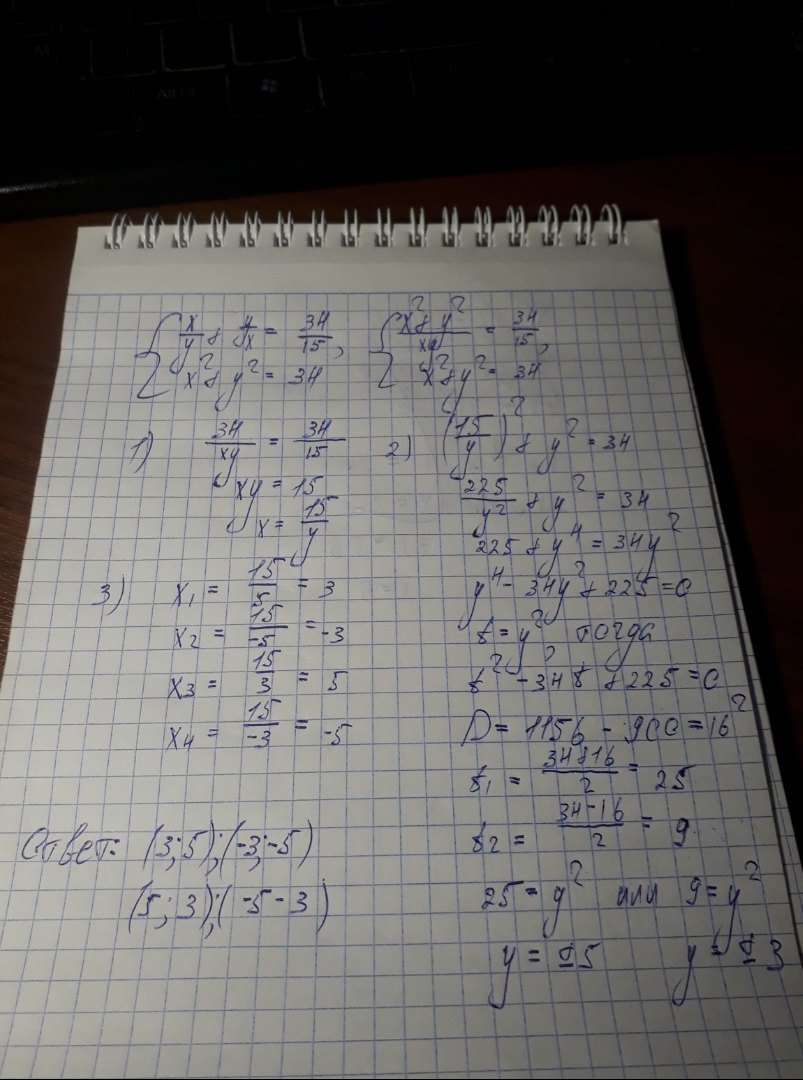 { x/y + y/x = 34/15, { (x² + y²)/xy = 34/15,
x² + y² = 34 x² + y² = 34
1) 34/xy = 34/15
xy = 15
x = 15/y
2) (15/y)² + y² = 34
225/y² + y² = 34
225 + y⁴ = 34y²
y⁴ - 34y² + 225 = 0
t = y², тогда
t² - 34t + 225 = 0
D = 1156 - 900 = 16²
t₁ = (34+16)/2 = 25
t₂ = (34-16)/2 = 9
25 = y² или 9 = y²
y = ±5 y = ±3
3) x₁ = 15/5 = 3
x₂ = 15/-5 = -3
x₃ = 15/3 = 5
x₄ = 15/-3 = -5
Ответ: (3;5);(-3;-5)
(5;3);(-5 -3)